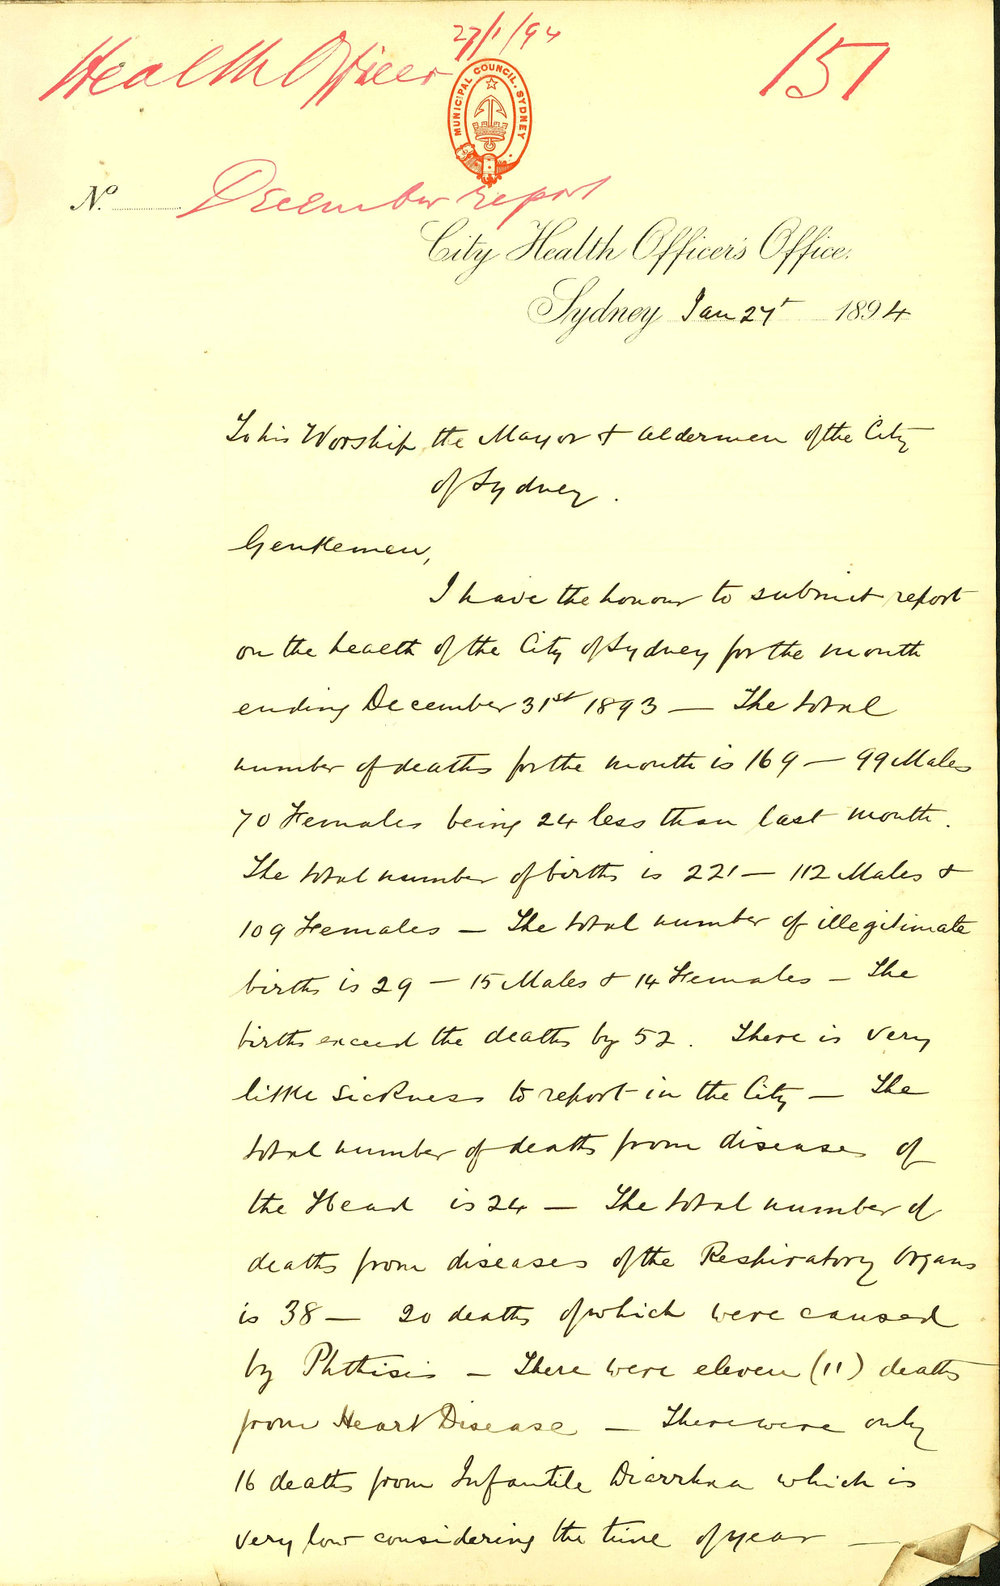 27/1/94
Health Officer
151
MUNICIPAL COUNCIL. SYDNEY
No.
December report
City Health Officer's Office,
Sydney Jan 27t 1894
To his Worship the Mayor & aldermen of the City
of Sydney.
Gentlemen,
I have the honour to submit report
on the health of the City of Sydney for the month
ending December 31st 1893 — The total
number of deaths for the month is 169 — 99 Males
70 Females being 24 less than last month.
The total number of births is 221 — 112 Males &
109 Females — The total number of illegitimate
births is 29 — 15 Males & 14 Females — The
births exceed the deaths by 52. There is very
little sickness to report in the City — The
total number of deaths from diseases of
the Head is 24 — The total number of
deaths from diseases of the Respiratory Organs
is 38 — 20 deaths of which were caused
by Phthisis — There were eleven (11) deaths
from Heart Disease — There were only
16 deaths from Infantile Diarrhœa which is
very low considering the time of year —